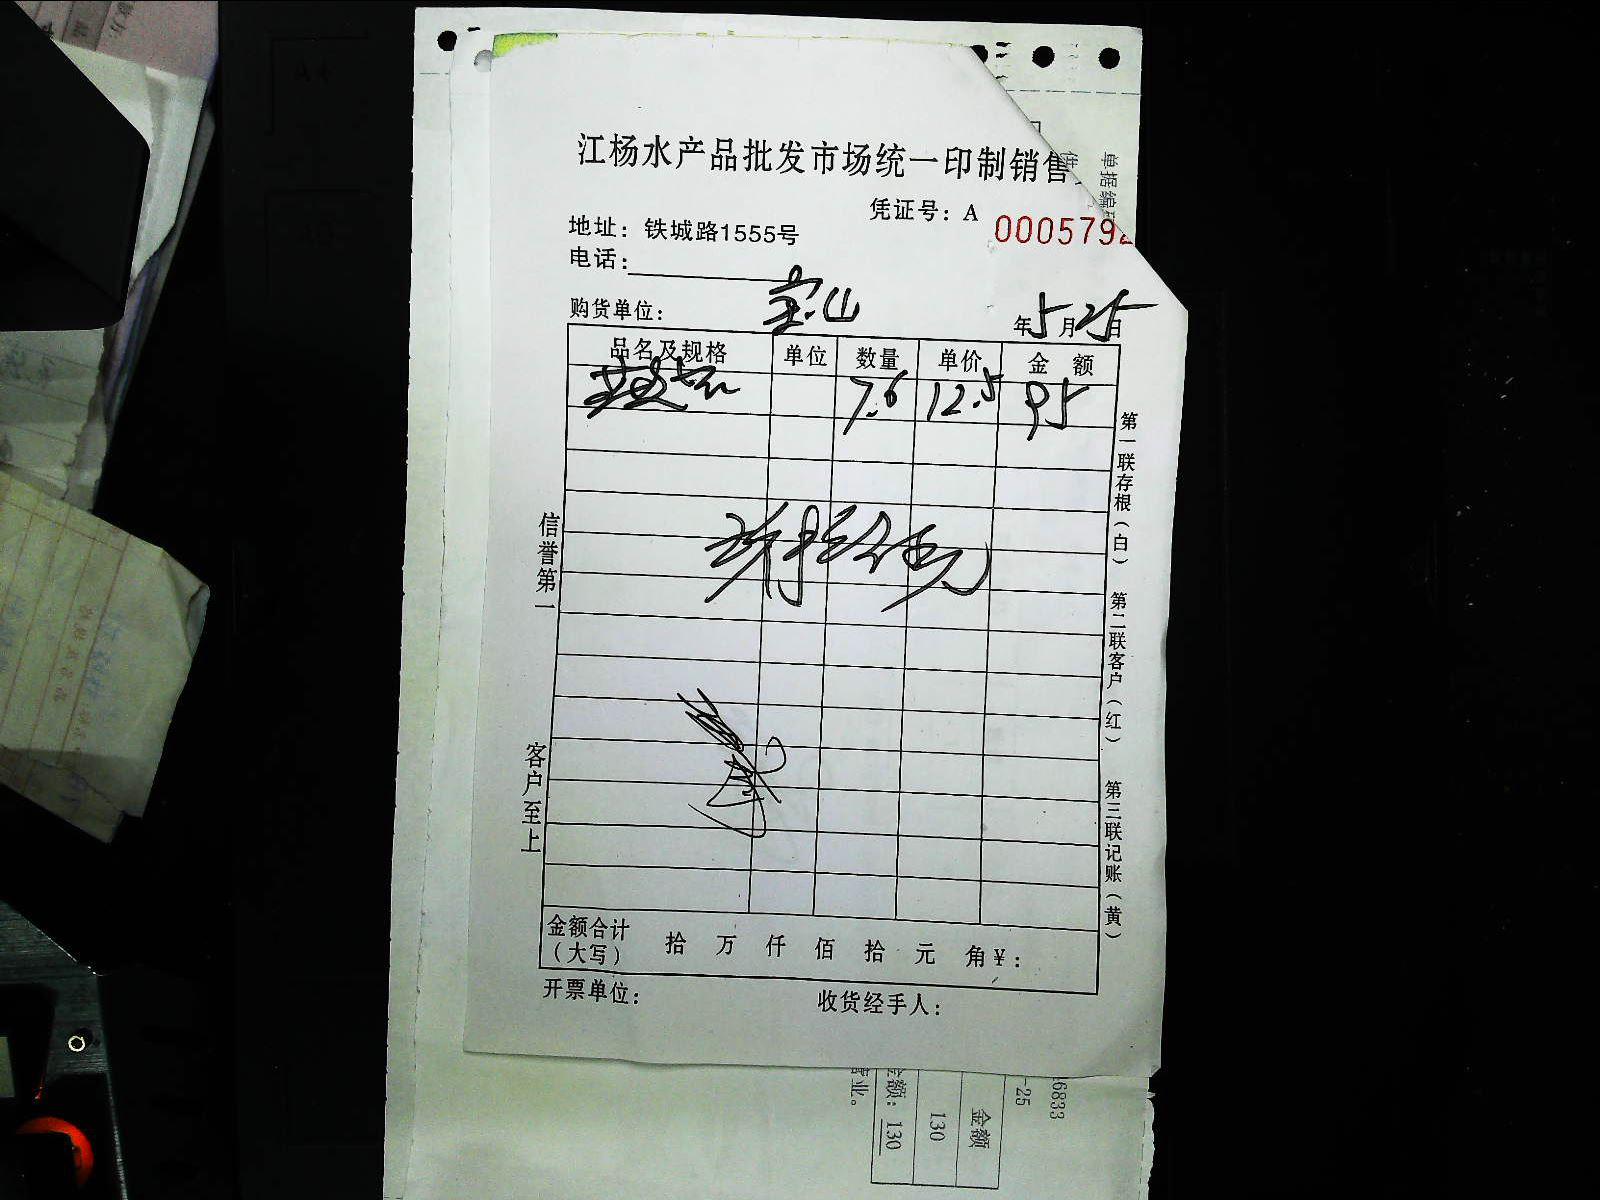 江杨水产品批发市场统一印制销售
凭证号：A 000579
地址：铁城路1555号
电话：
购货单位： 宝山 年5月25日
品名及规格 单位 数量 单价 金 额
7.6 12.5 95
信誉第一
客户至上
第一联存根（白）
第二联客户（红）
第三联记账（黄）
金额合计
（大写） 拾 万 仟 佰 拾 元 角 ¥：
开票单位： 收货经手人：
单据编
金额
130
金额：130
-25
16833
营业。